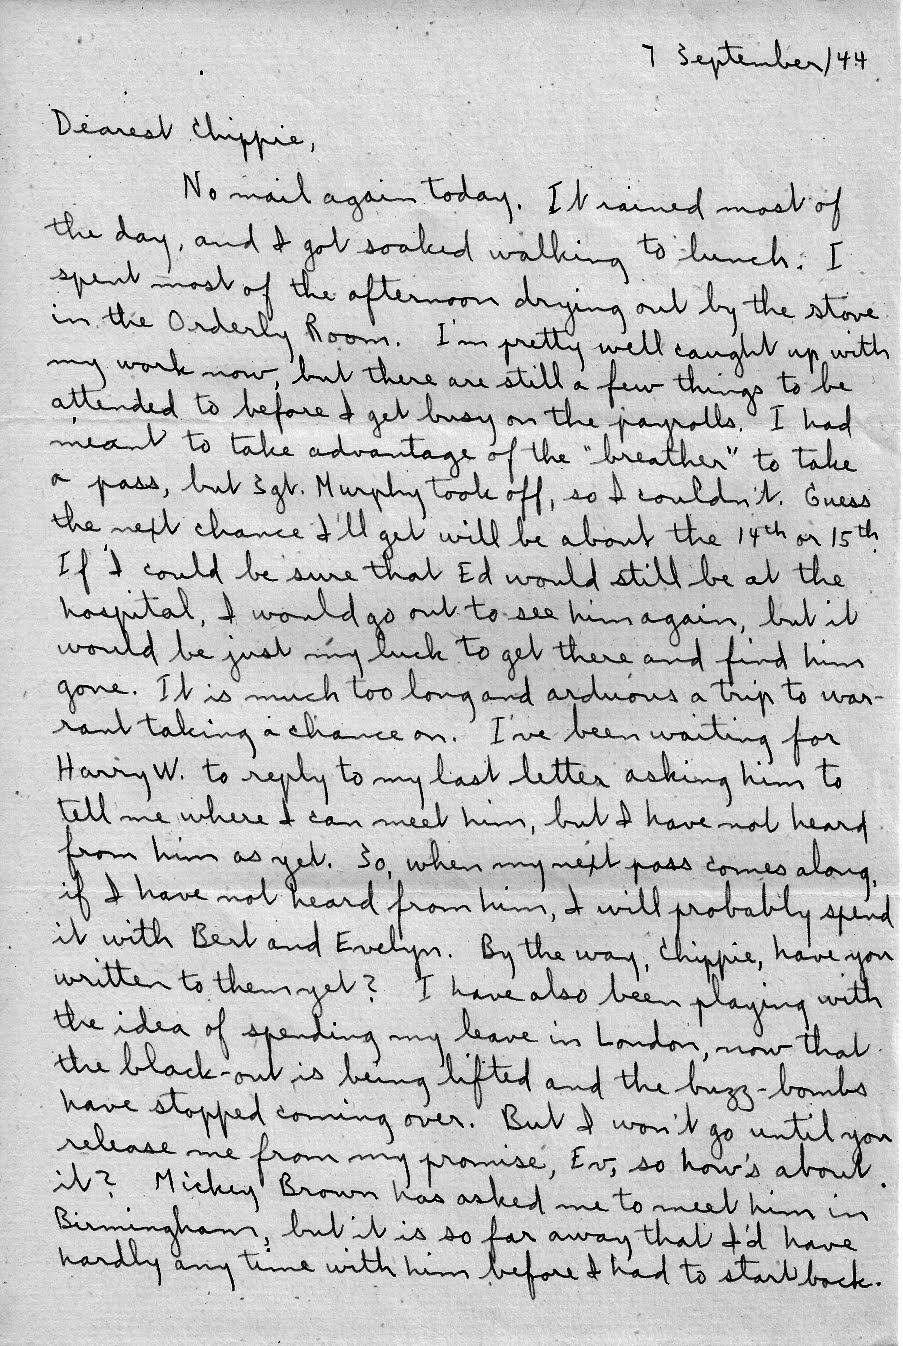 7 September/44
Dearest Chippie,
No mail again today. It rained most of
the day, and I got soaked walking to lunch. I
spent most of the afternoon drying out by the stove
in the Orderly Room. I'm pretty well caught up with
my work now, but there are still a few things to be
attended to before I get busy on the payrolls. I had
meant to take advantage of the "breather" to take
a pass, but Sgt. Murphy took off, so I couldn't. Guess
the next chance I'll get will be about the 14th or 15th.
If I could be sure that Ed would still be at the
hospital, I would go out to see him again, but it
would be just my luck to get there and find him
gone. It is much too long and arduous a trip to war-
rant taking a chance on. I've been waiting for
Harry W. to reply to my last letter asking him to
tell me where I can meet him, but I have not heard
from him as yet. So, when my next pass comes along,
if I have not heard from him, I will probably spend
it with Bert and Evelyn. By the way, Chippie, have you
written to them yet? I have also been playing with
the idea of spending my leave in London, now that
the black-out is being lifted and the buzz-bombs
have stopped coming over. But I won't go until you
release me from my promise, Ev, so how's about
it? Mickey Brown has asked me to meet him in
Birmingham, but it is so far away that I'd have
hardly any time with him before I had to start back.